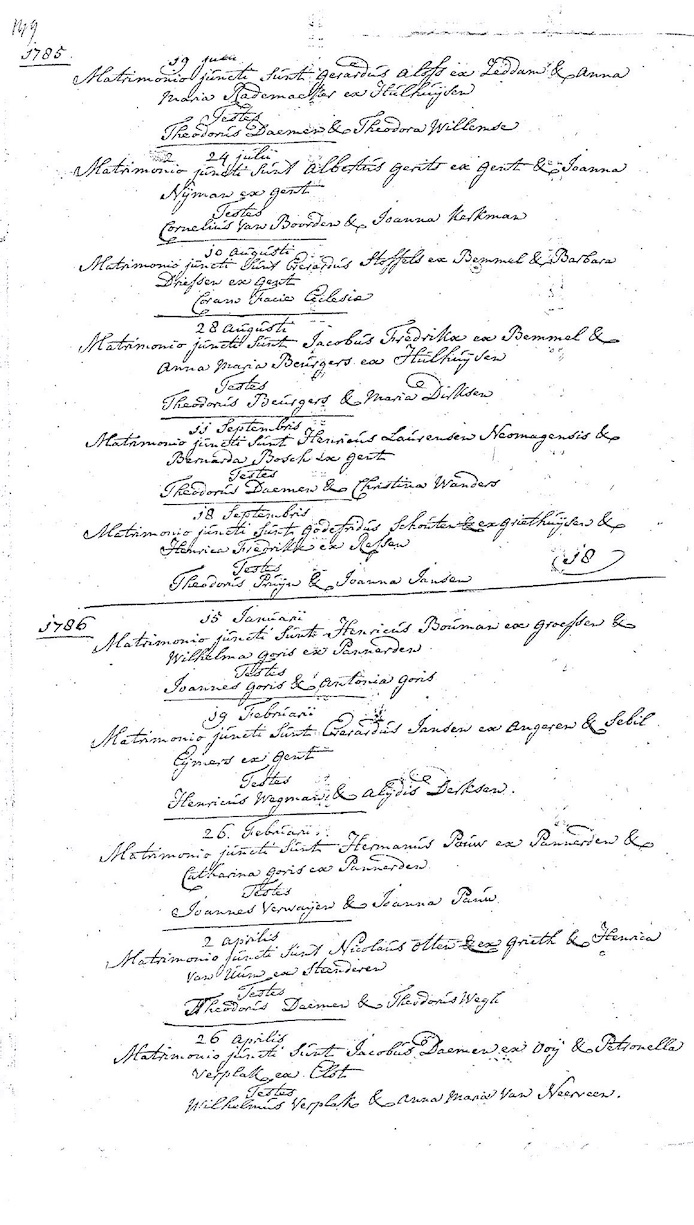 149
1785.
Matrimonio júncti Súnt Gerardús Alofs ex Zeddam & Anna
Maria Rademaeker ex Húlhúÿsen
Testes
Theodorús Daemen & Theodora Willemse
24 júlii
Matrimonio júncti Súnt Albertús Gerits ex Gent & Joanna
Nÿman ex Gent
Testes
Cornelius Van Boorden & Joanna Kerkman
10 Augústi
Matrimonio júncti Súnt Gerardús Stoffels ex Bemmel & Barbara
Driessen ex Gent
Coram Facie Eclesia
28 Augústi
Matrimonio júncti Súnt Jacobús Fredrikx ex Bemmel &
Anna Maria Beúrgers ex Húlhúÿsen
Testes
Theodorús Beúrgers & Maria Dirksen
11 Septembris
Matrimonio júncti Súnt Henricús Laúrensen Neomagensis &
Bernarda Bosch ex Gent
Testes
Theodorús Daemen & Christina Wanders
18 Septembris
Matrimonio júncti Súnt Godefridús Schouten ex Griethúÿsen &
Henrica Fredrikx ex Ressen
Testes
Theodorús Prúÿn & Joanna Jansen
18
1786
15 Januarii
Matrimonio júncti Súnt Henricús Boúman ex Groessen &
Wilhelma Goris ex Pannerden
Testes
Joannes Goris & Antonia Goris
19 Febrúarii
Matrimonio júncti Súnt Gerardús Jansen ex Angeren & Sebil
Eÿmers ex Gent
Testes
Henricús Wegman & Alÿdis Derksen.
26. Febrúarii.
Matrimonio júncti Súnt Hermanús Paúw ex Pannerden &
Catharina Goris ex Pannerden
Testes
Joannes Verwaÿen & Joanna Paúw
2 Aprilis
Matrimonio júncti Súnt Nicolaús Otten ex Grieth & Henrica
Van Uúm ex Steenderen
Testes
Theodorús Daemen & Theodorús Wegh
26 Aprilis
Matrimonio júncti Súnt Jacobús Daemen ex Ooÿ & Petronella
Verplak ex Elst
Testes
Wilhelmús Verplak & Anna Maria Van Neerveen.